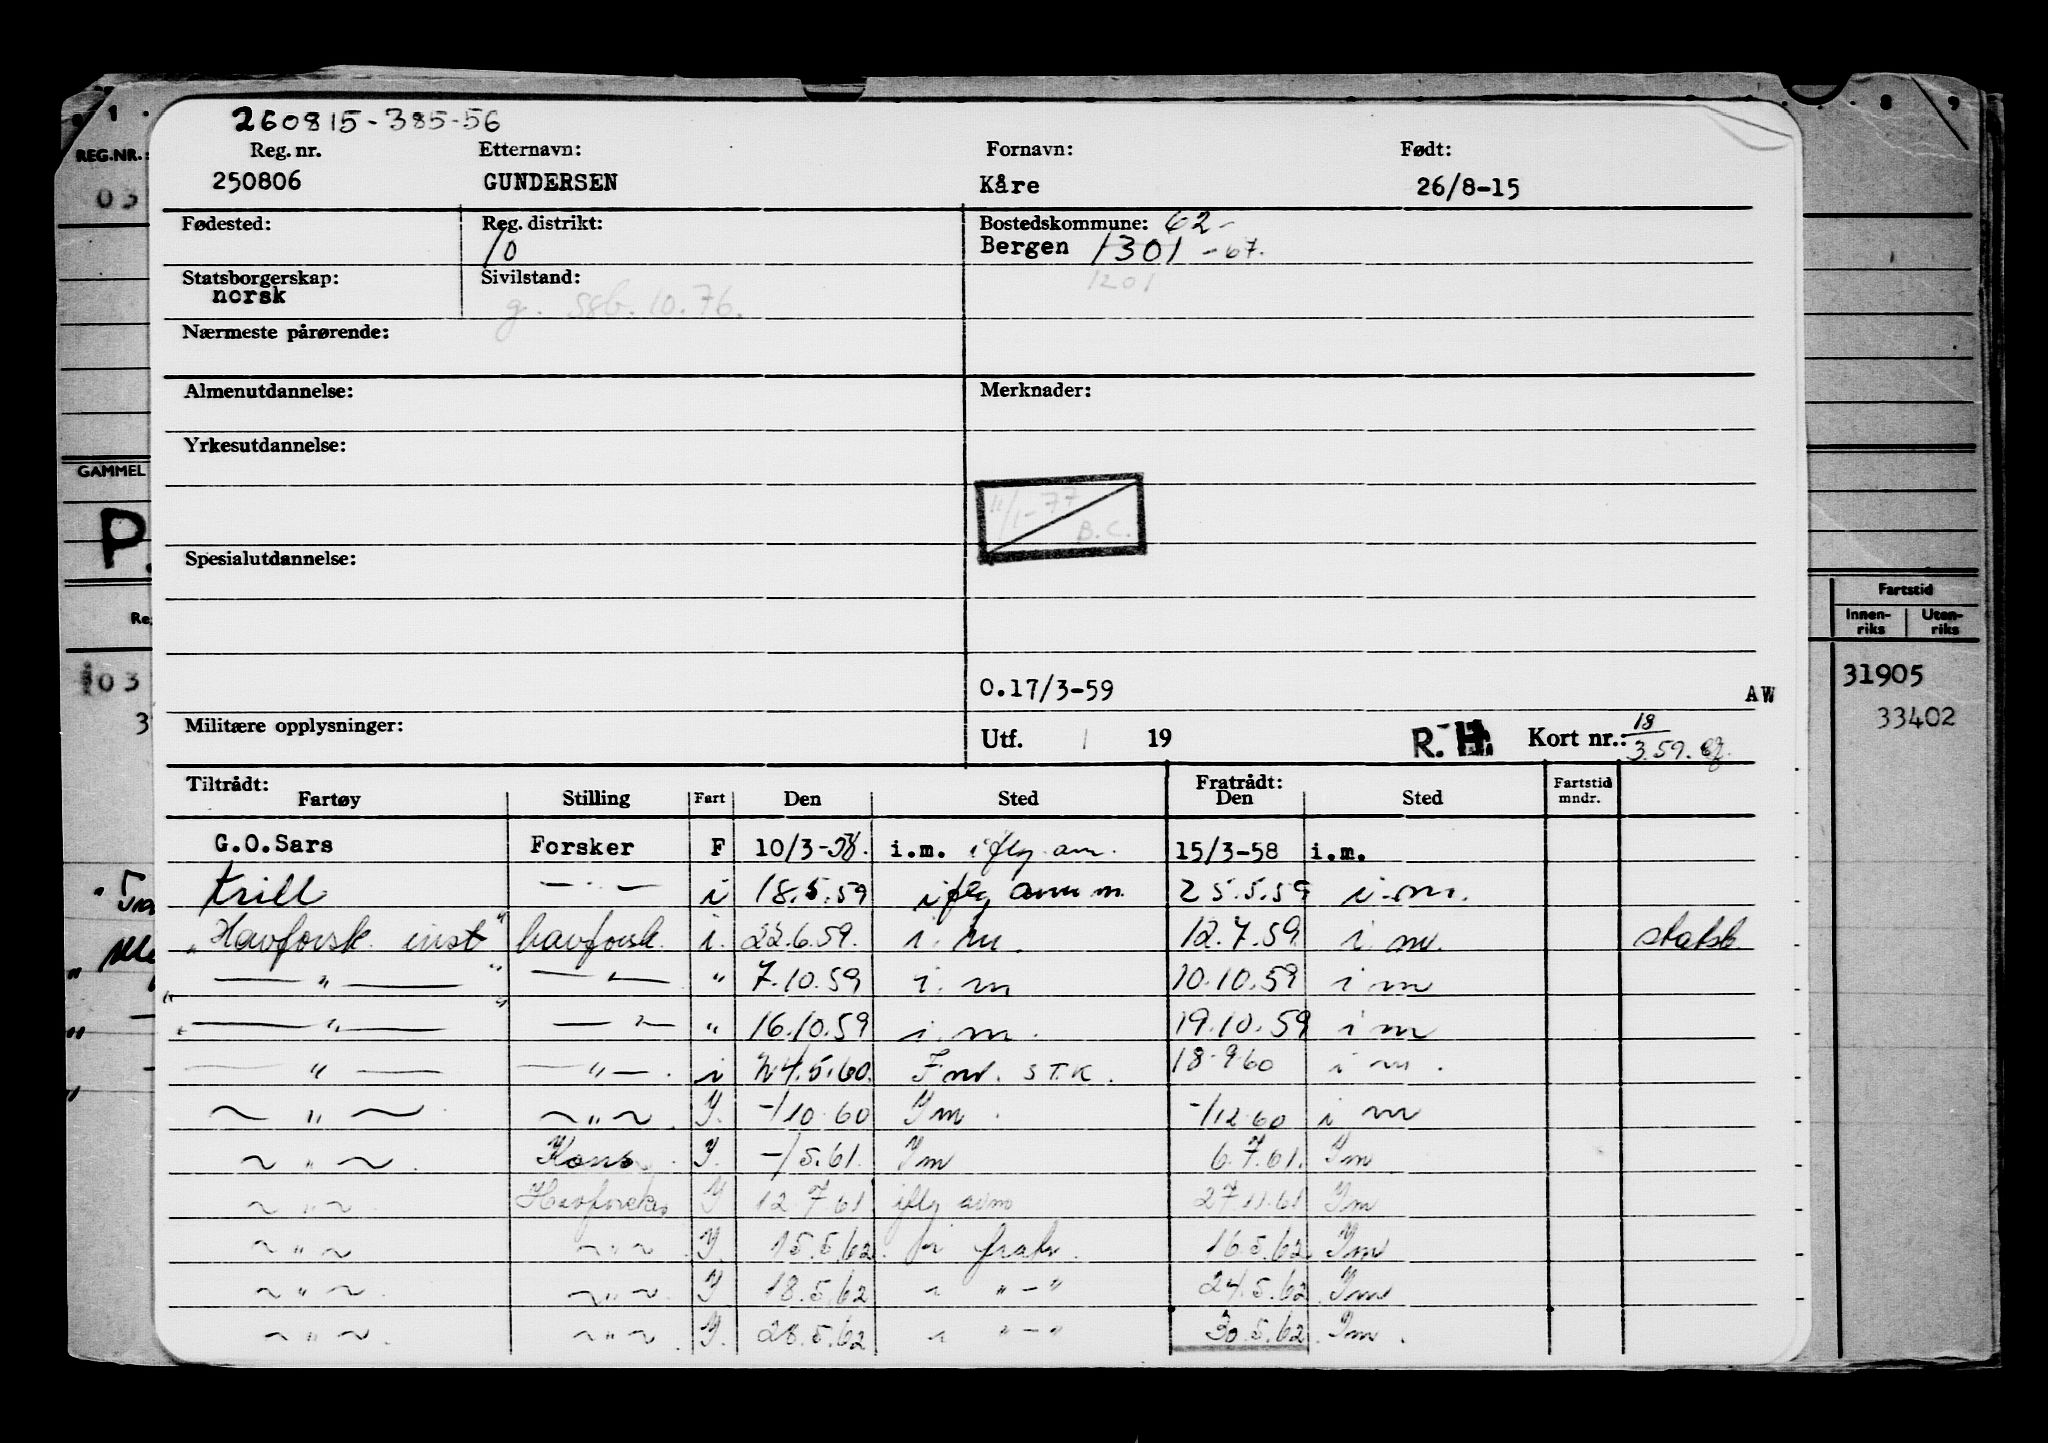 1 . . . 8 9
260815-385-56
REG.NR.: Reg. nr. Etternavn: Fornavn: Født:
03 250806 GUNDERSEN Kåre 26/8-15
Fødested: Reg. distrikt: Bostedskommune: 62-
10 Bergen 1301 -67.
Statsborgerskap: Sivilstand: 1201
norsk g. ssb. 10.76.
Nærmeste pårørende:
Almenutdannelse: Merknader:
Yrkesutdannelse:
GAMMEL
11/1-77
P. B.C.
Spesialutdannelse:
Fartstid
Innen-riks Uten-riks
03 31905
0.17/3-59 AW
3 33402
Militære opplysninger: Utf. 19 R.H. Kort nr.: 18/3.59.
Tiltrådt: Fratrådt: Fartstid mndr.
Fartøy Stilling Fart Den Sted Den Sted
G.O.Sars Forsker F 10/3-58. i.m. iflg. anm. 15/3-58 i.m.
Krill — " — i 18.5.59 iflg anm m. 25.5.59 i.m.
"Havforsk. inst" havforsk. i. 22.6.59. i. m. 12.7.59 i m. statsb.
" — " — " — " — " 7.10.59 i. m 10.10.59 i m
" — " — " — " — " 16.10.59 i. m. 19.10.59 i m
— " — — " — . i 24.5.60. Fmd. S T.K. 18.9.60 i m.
~ " ~ ~ " ~ Y. -/10.60 Ym. -/12.60 i m
~ " ~ . Kons. Y. -/5.61. Ym 6.7.61. Ym
~ " ~ Havforsker Y 12.7.61 iflg anm 27.11.61 Ym
~ " ~ ~ " ~ . Y. 15.5.62. 16.5.62. Ym
~ " ~ . ~ " ~ . Y 18.5.62 " - " 24.5.62 Ym
~ " ~ . ~ " ~ . Y. 28.5.62 " - " 30.5.62. Ym.